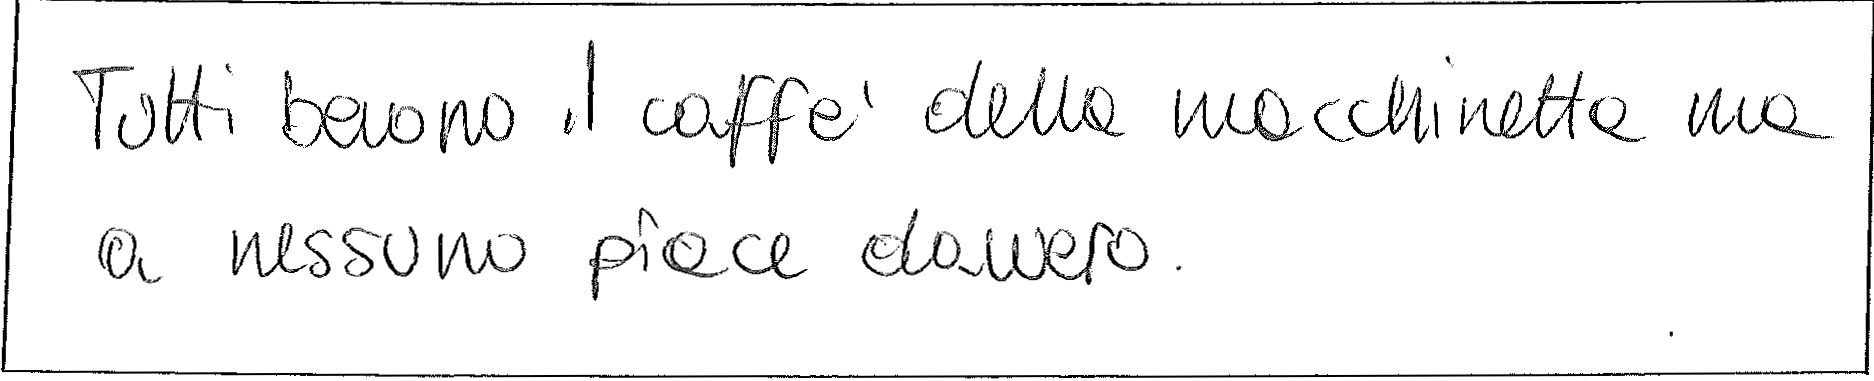 Tutti bevono il caffe' della macchinetta ma
a nessuno piace davvero.